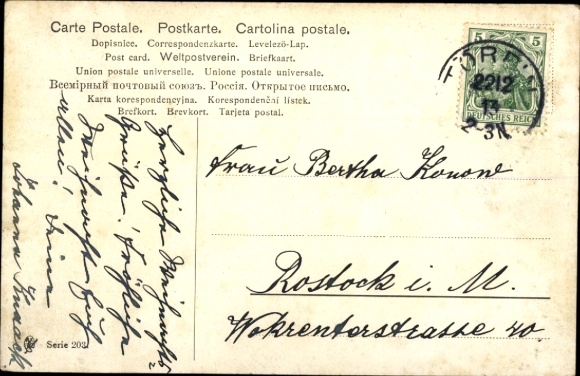 Carte Postale. Postkarte. Cartolina postale.
Dopisnice. Correspondenzkarte. Levelező-Lap.
Post card. Weltpostverein. Briefkaart.
Union postale universelle. Unione postale universale.
Всемірный почтовый союзъ. Россія. Открытое письмо.
Karta korespondencyjna. Korespondenční lístek.
Brefkort. Brevkort. Tarjeta postal.
5 5
DEUTSCHES REICH
22 12
13
2-3N
Herzliche Weihnachts
Grüße! Fröhliche
Weihnacht Euch
allen! Deine
Johanna Knaack
Frau Bertha Konow
Rostock i. M.
Wokrenterstrasse 40.
Serie 203